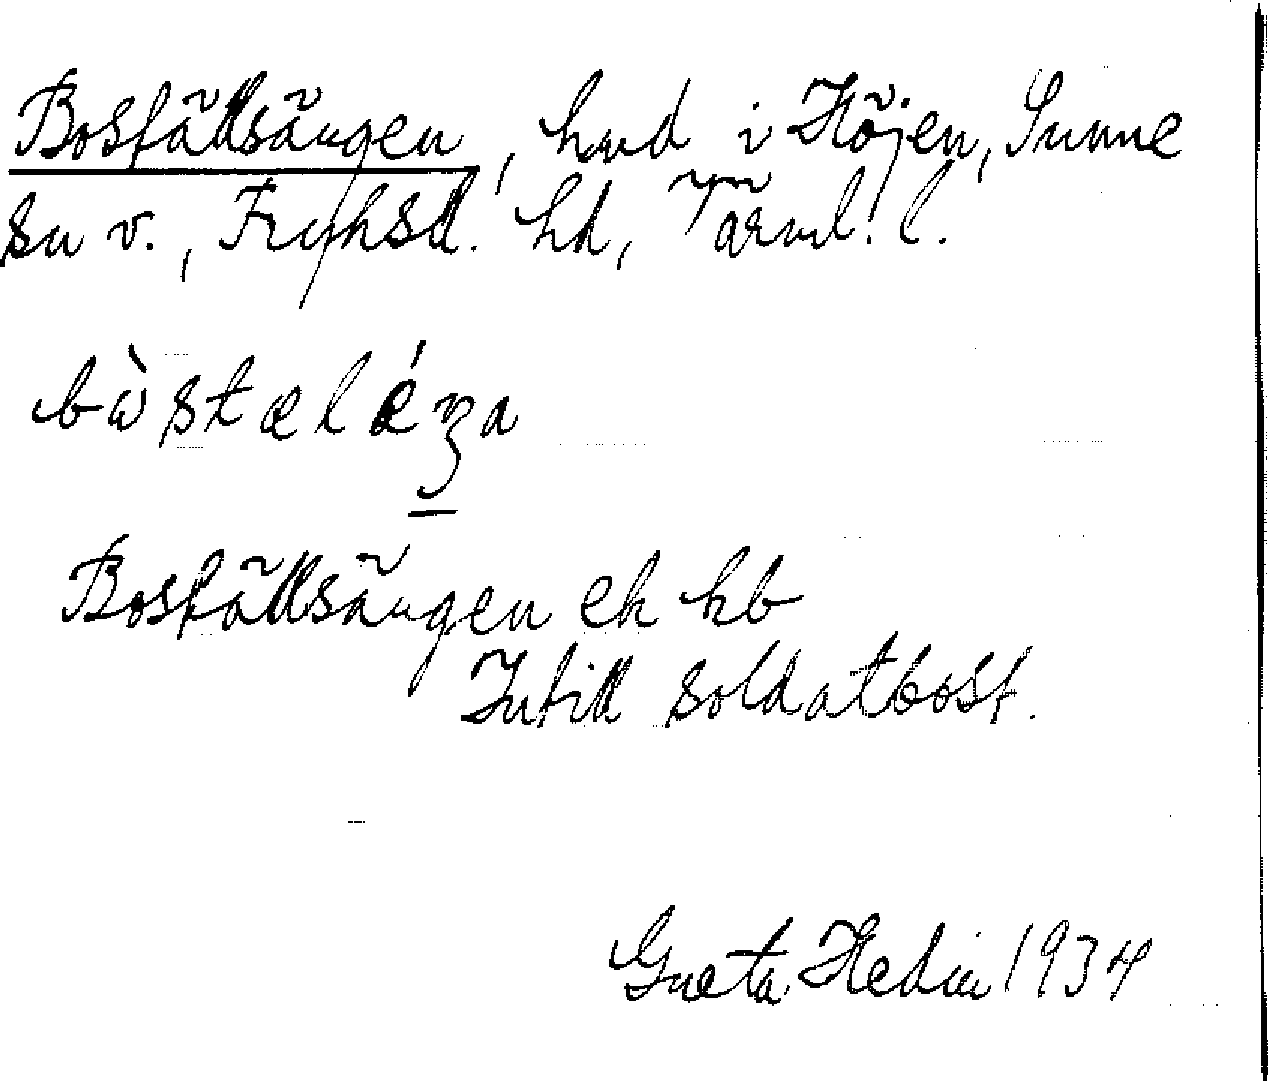 Bosfällsängen, hmd i Höjen, Sunne
sn v., Fryksd. hd, Värml. l.
bωstælæŋa
Bosfällsängen ek kb
Intill soldatbost.
Greta Hedin 1934